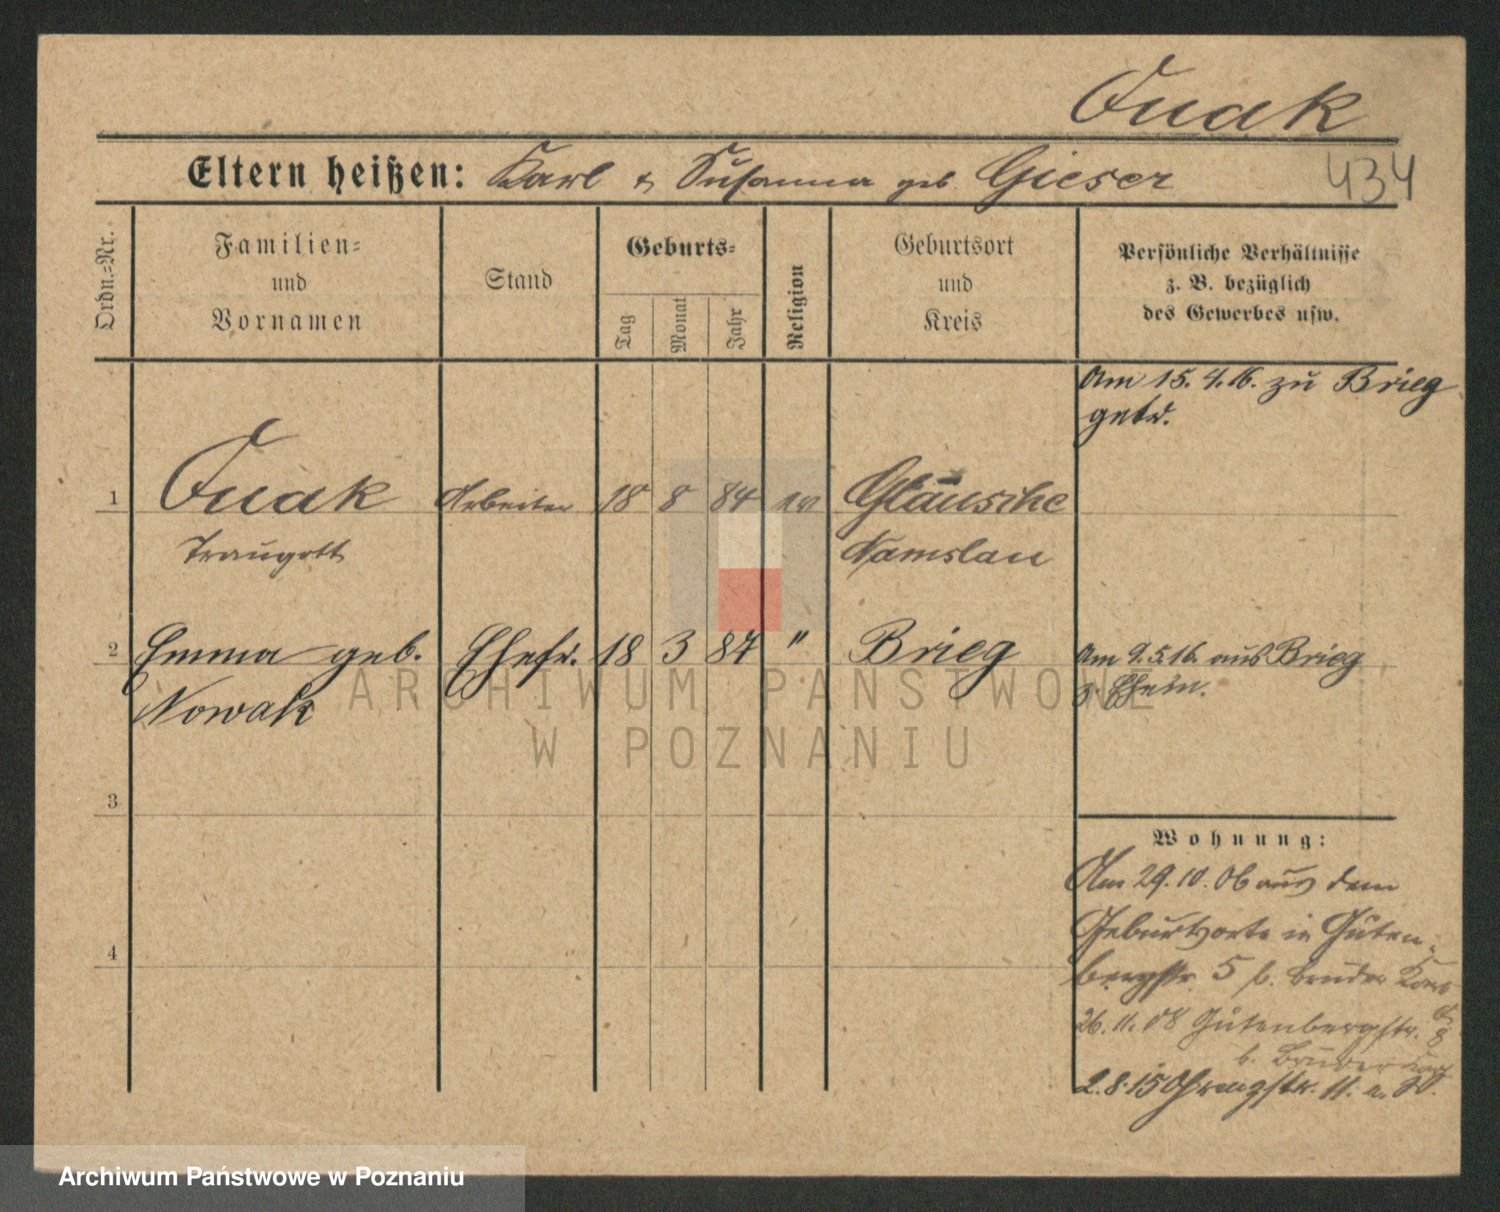 Quak
434
Eltern heißen: Karl & Susanna geb Gieser
Ordn.=Nr.
Familien=
und
Vornamen
Stand
Geburts=
Tag
Monat
Jahr
Religion
Geburtsort
und
Kreis
Persönliche Verhältnisse
z. B. bezüglich
des Gewerbes usw.
Am 15.4.16. zu Brieg
getr.
1 Quak Arbeiter 18 8 84 ev Glausche
Traugott Namslau
2 Emma geb. Ehefr. 18 3 87 " Brieg
Nowak
Am 9.5.16. aus Brieg
z. Ehem.
3
4
Wohnung:
Am 29.10.06 aus dem
Geburtsorte in Guten=
bergstr. 5 b. Bruder Karl
26.11.08 Gutenbergstr. 8
b. Bruder Karl
2.8.15 11.
ARCHIWUM PAŃSTWOWE
W POZNANIU
Archiwum Państwowe w Poznaniu